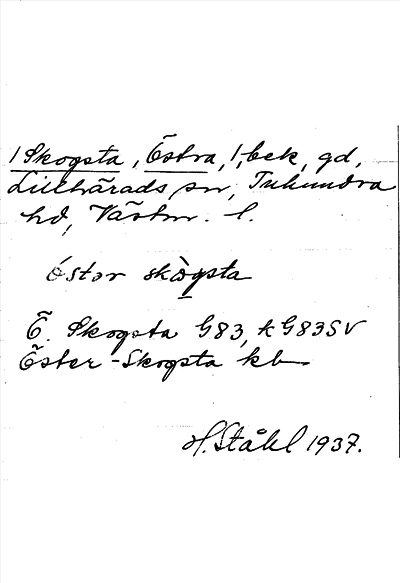 /Skogsta, Östra, /, bek, gd,
Lillhärads sn, Tuhundra
hd, Västm. l.
östər skògsta
Ö. Skogsta G83, k G83SV
Öster-Skogsta kb
H. Ståhl 1937.